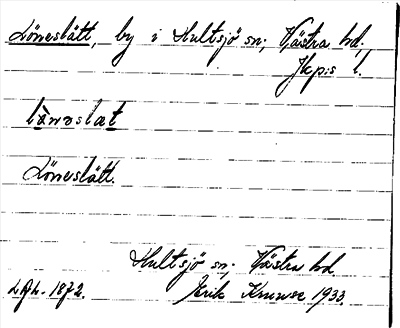 Löneslätt, by i Hultsjö sn, Västra hd,
Jkp:s l.
lö̀nəslæt
Löneslätt.
Hultsjö sn, Västra hd.
Lgh. 1872. Erik Kruuse 1933.